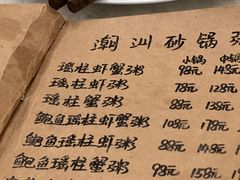 潮汕砂锅粥
小锅 中锅
瑶柱虾蟹粥 98元 148元
瑶柱虾粥 78元 128元
瑶柱蟹粥 88元 138元
鲍鱼瑶柱虾蟹粥 108元 178元
鲍鱼瑶柱虾粥 88元 148元
鲍鱼瑶柱蟹粥 98元 158元